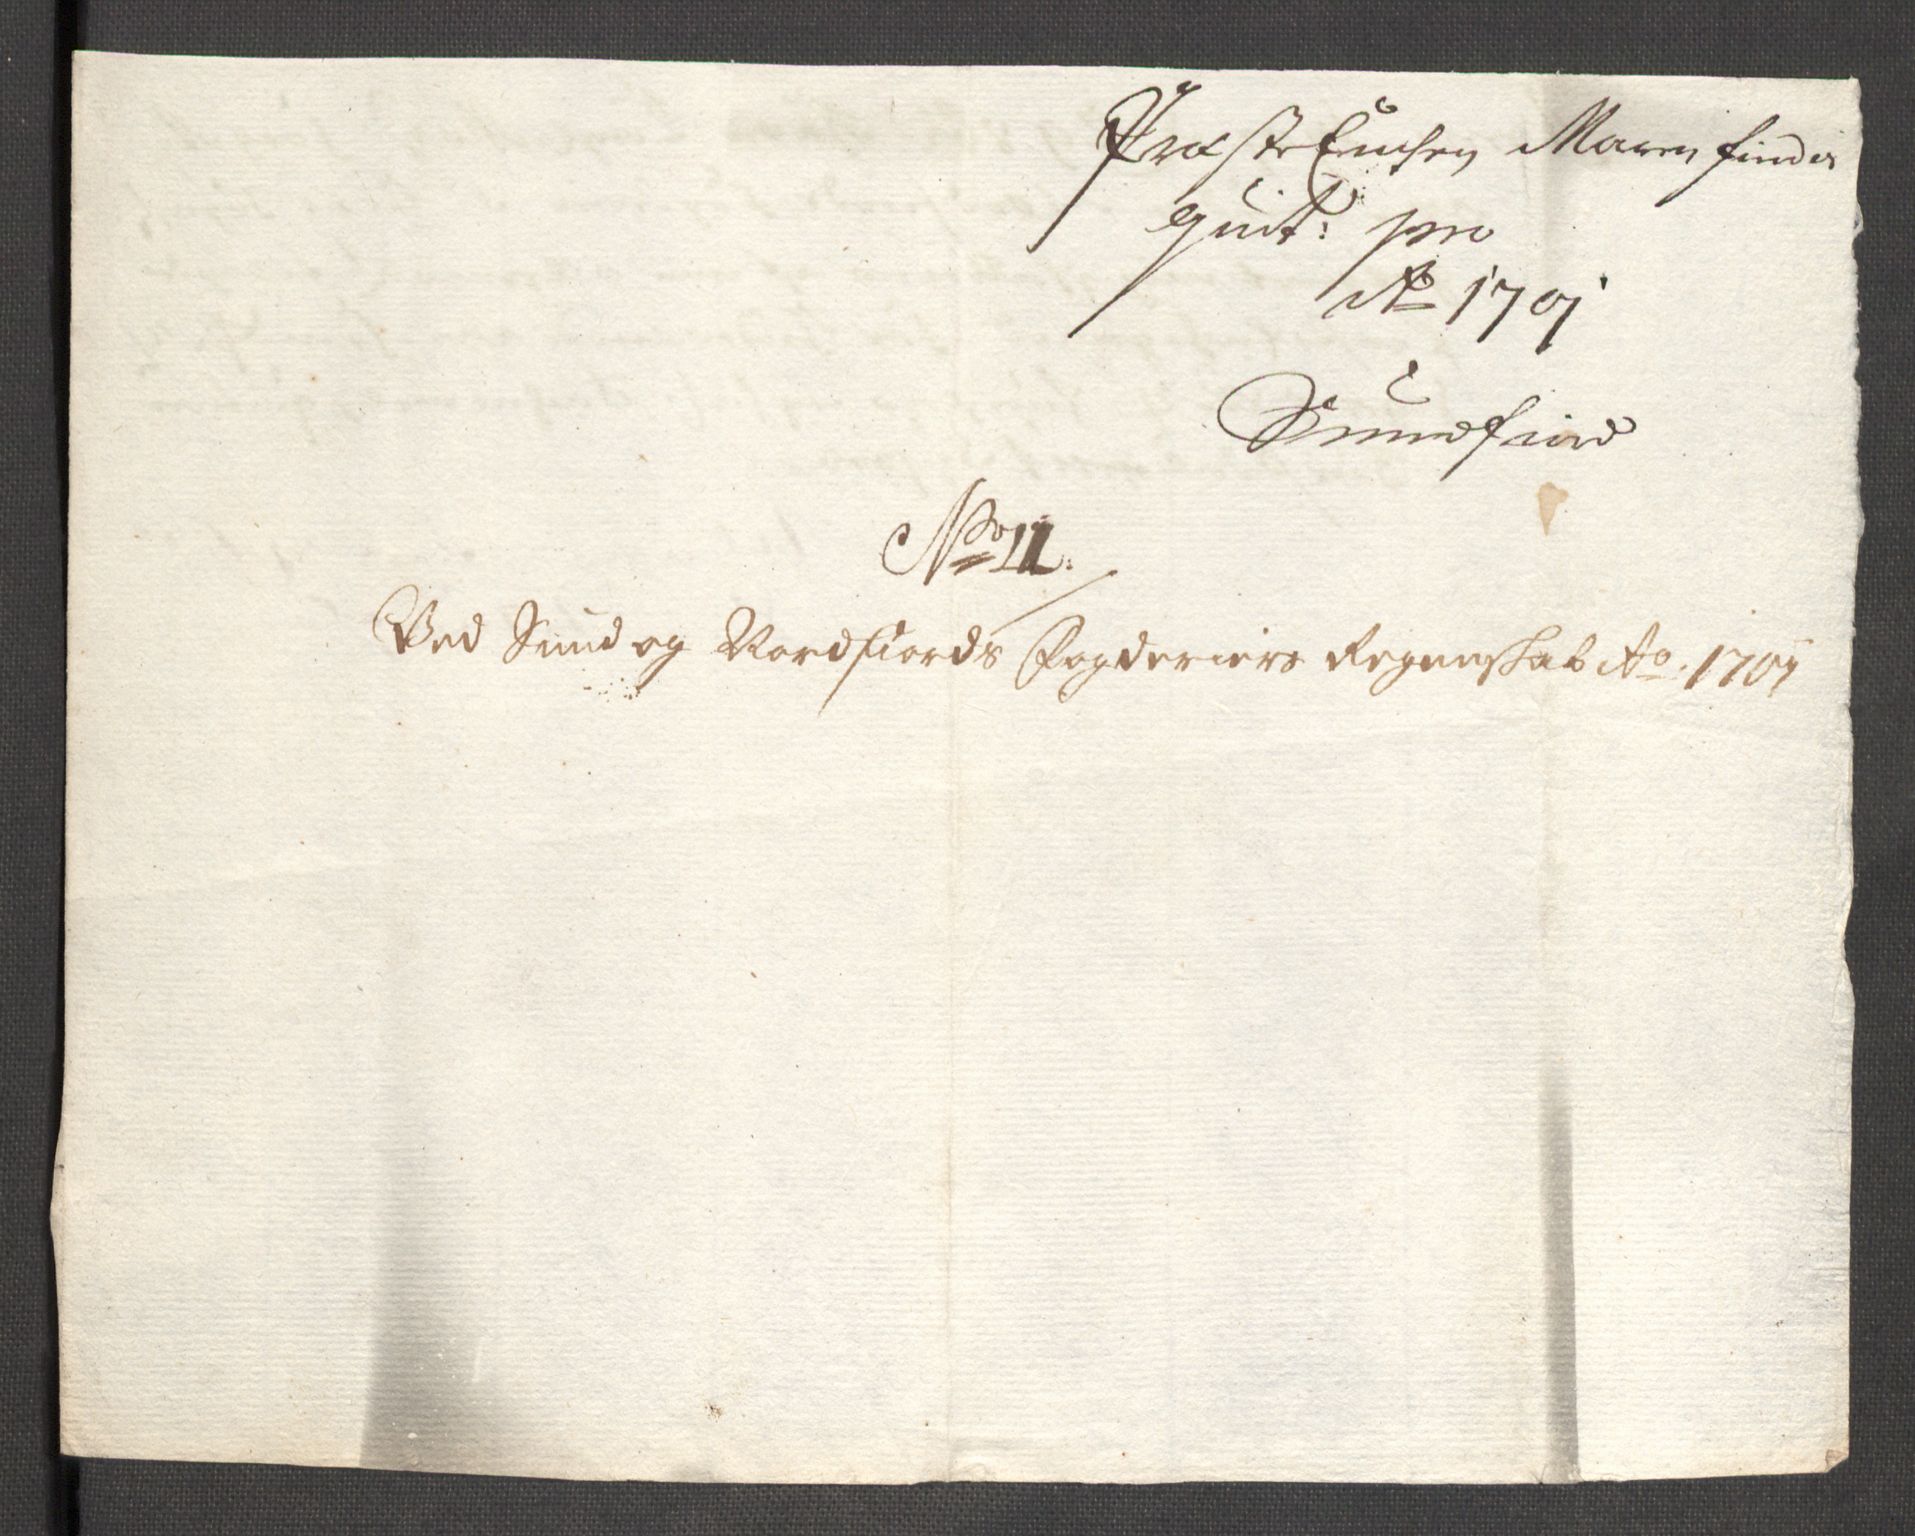 Præste Enchen Maren findis
quit: pro
Ao 1701
Sundfior
No 11.
Ved Sund og Nordfiords Fogderiers Regenskab Ao. 1701